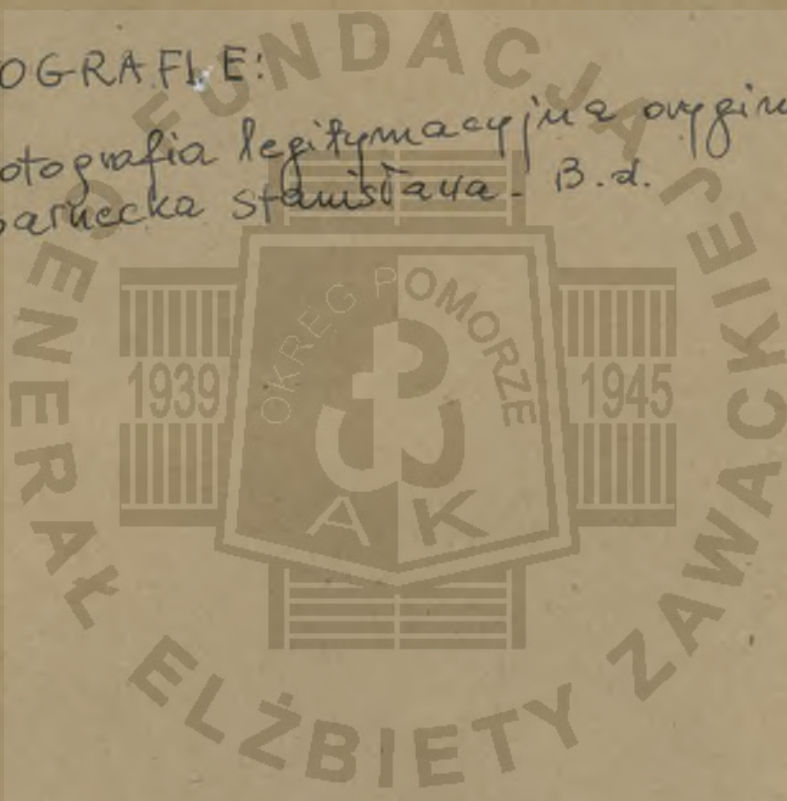 OGRAFIE:
otografia legitymacyjna orygin
arnecka Stanisława. B.d.
FUNDACJA GENERAŁ ELŻBIETY ZAWACKIEJ
OKRĘG POMORZE
1939 1945
AK